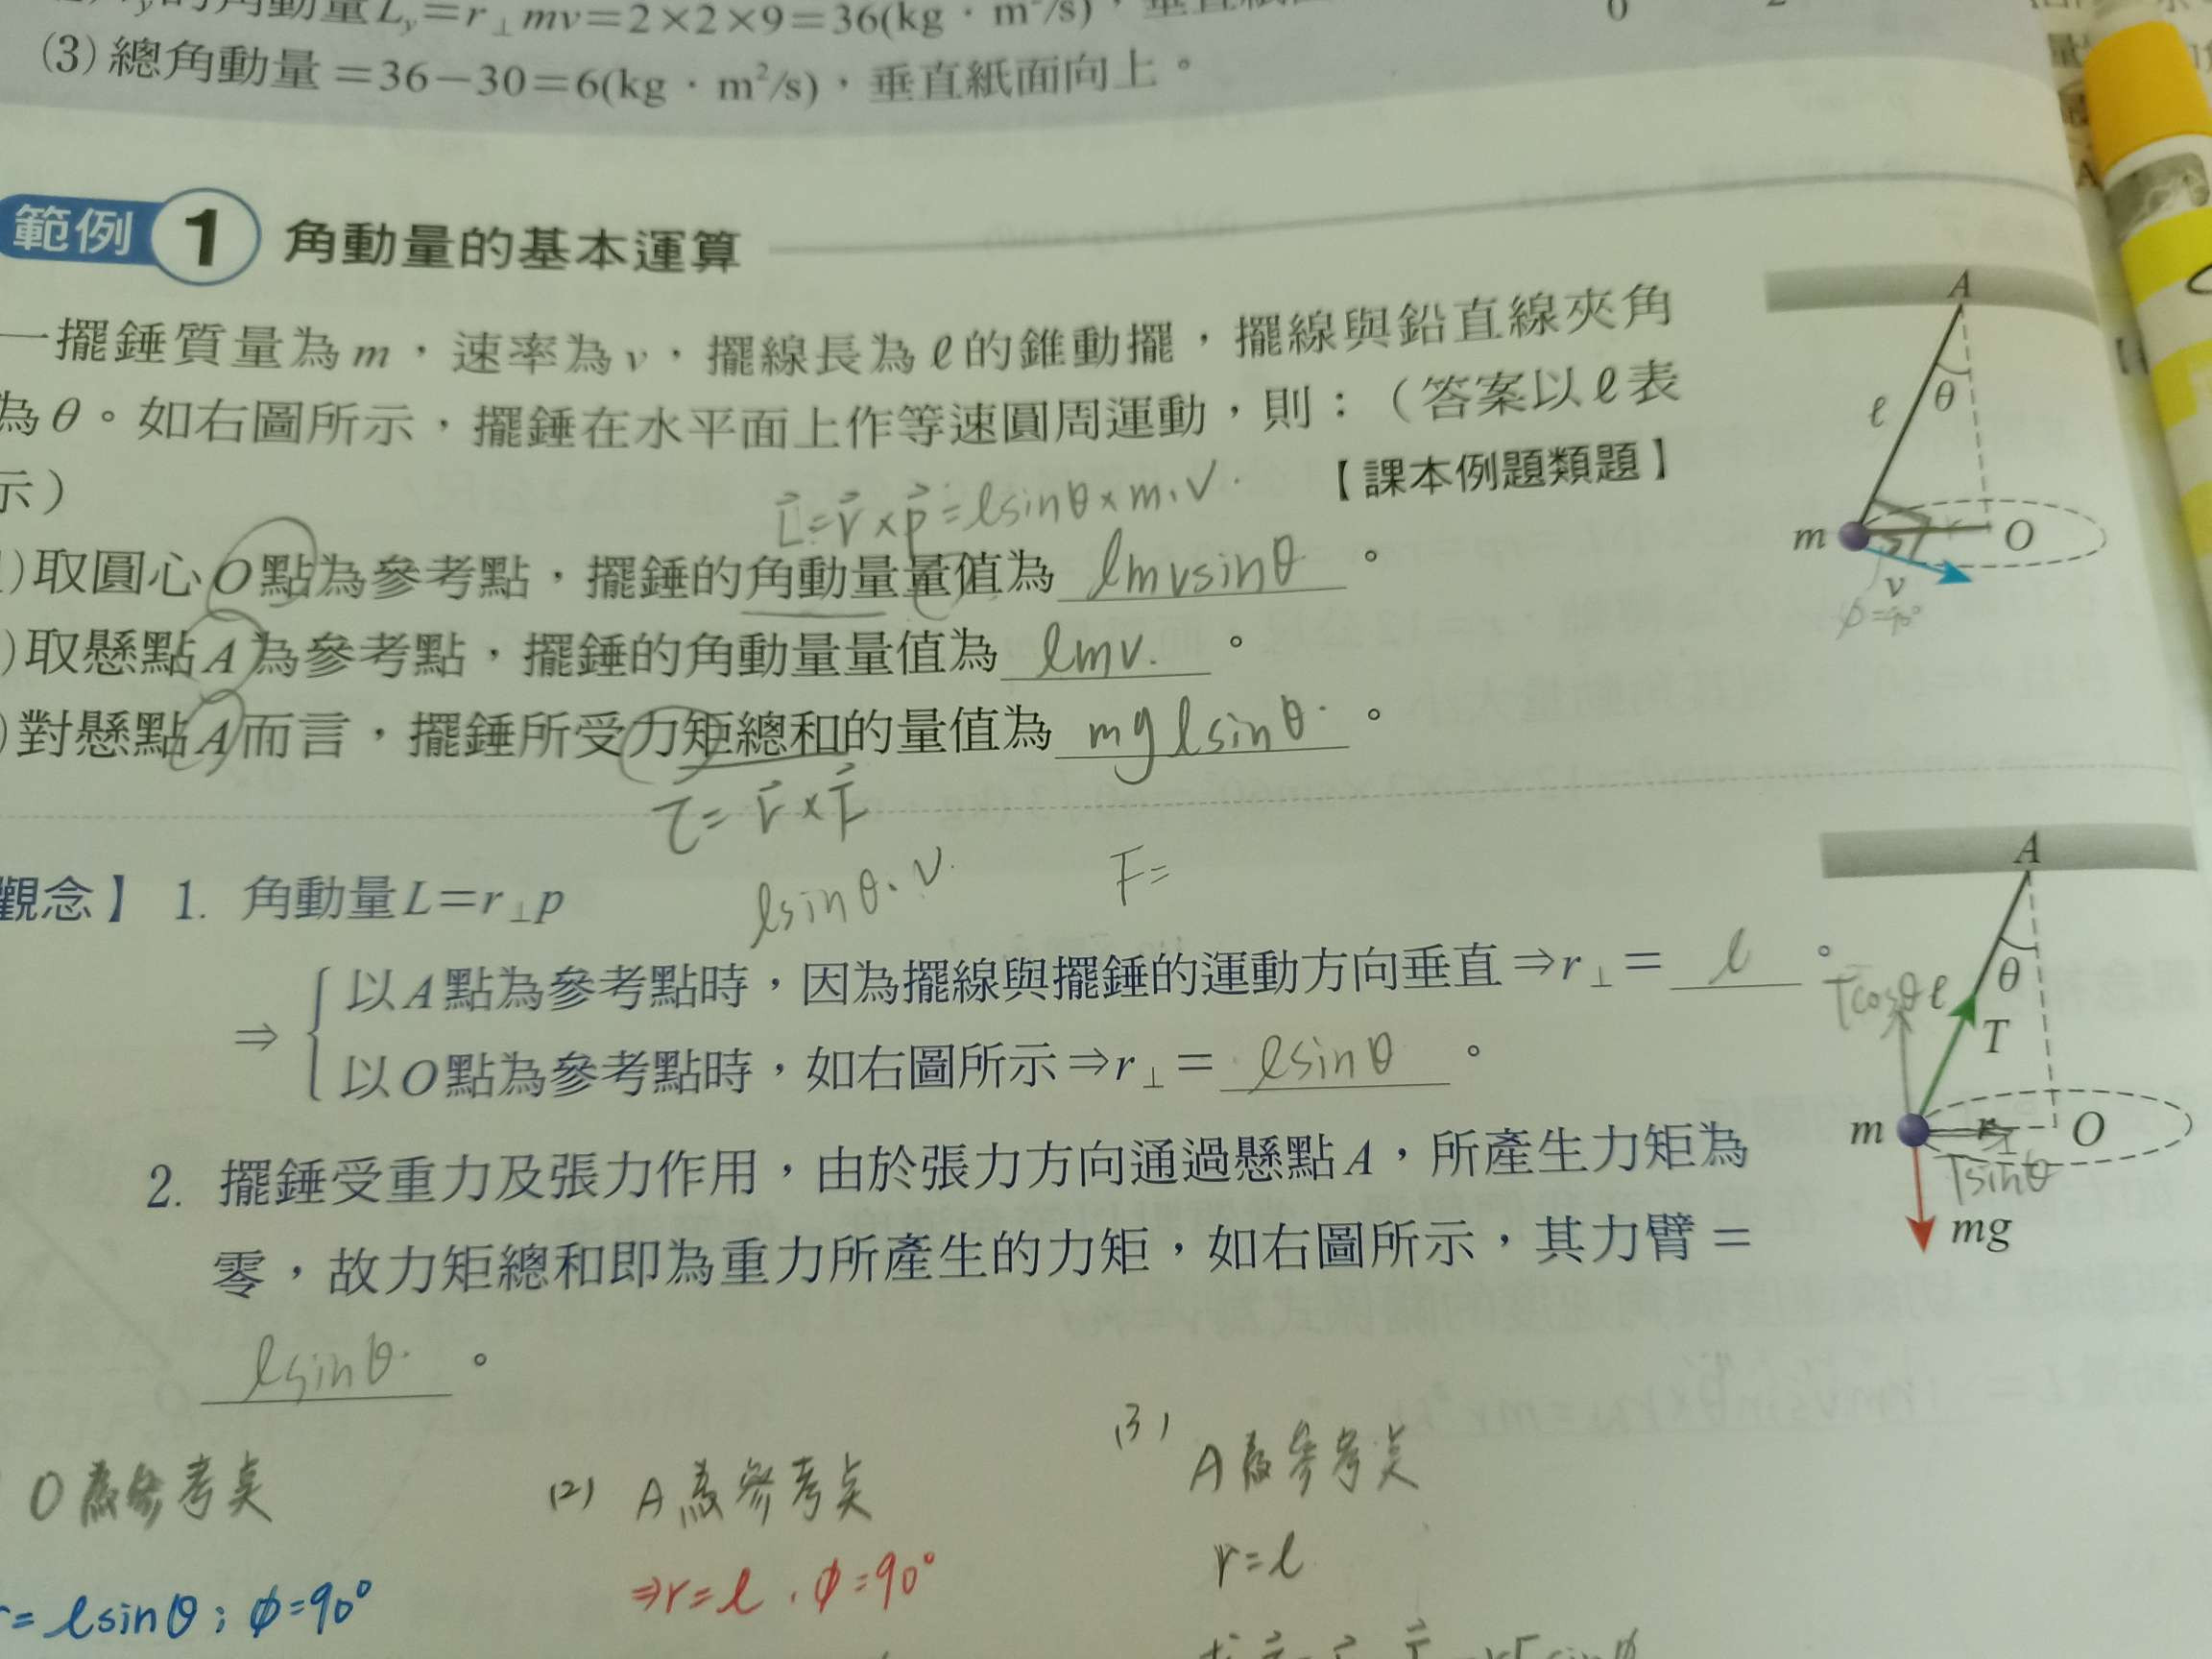 的角動量Ly=r⊥mv=2×2×9=36(kg·m²/s)，垂直紙面
(3)總角動量=36-30=6(kg·m²/s)，垂直紙面向上。
範例 1 角動量的基本運算
一擺錘質量為m，速率為v，擺線長為ℓ的錐動擺，擺線與鉛直線夾角
為θ。如右圖所示，擺錘在水平面上作等速圓周運動，則：（答案以ℓ表
示）
【課本例題類題】
L⃗=r⃗×p⃗=ℓsinθ×m·v.
)取圓心O點為參考點，擺錘的角動量量值為 ℓmvsinθ 。
)取懸點A為參考點，擺錘的角動量量值為 ℓmv. 。
)對懸點A而言，擺錘所受力矩總和的量值為 mgℓsinθ. 。
A
θ
ℓ
m
r
O
v
φ=90°
τ=r⃗×F⃗
ℓsinθ·v.
F=
觀念】 1. 角動量L=r⊥p
⇒ 以A點為參考點時，因為擺線與擺錘的運動方向垂直⇒r⊥= ℓ 。
以O點為參考點時，如右圖所示⇒r⊥= ℓsinθ 。
2. 擺錘受重力及張力作用，由於張力方向通過懸點A，所產生力矩為
零，故力矩總和即為重力所產生的力矩，如右圖所示，其力臂=
ℓsinθ. 。
A
θ
Tcosθ ℓ
T
m
r
O
Tsinθ
mg
O為參考点
=ℓsinθ；φ=90°
(2) A為參考点
⇒r=ℓ，φ=90°
(3) A為參考点
r=ℓ